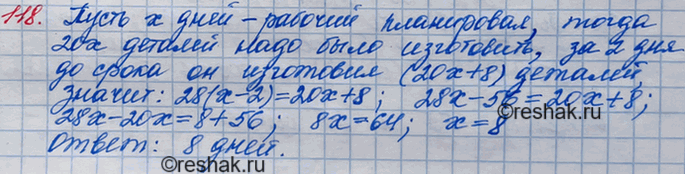 118. Пусть x дней - рабочий планировал, тогда
20x деталей надо было изготовить, за 2 дня
до срока он изготовил (20x+8) деталей,
значит: 28(x-2)=20x+8; 28x-56=20x+8;
28x-20x=8+56; 8x=64; x=8
Ответ: 8 дней.
©reshak.ru
©reshak.ru